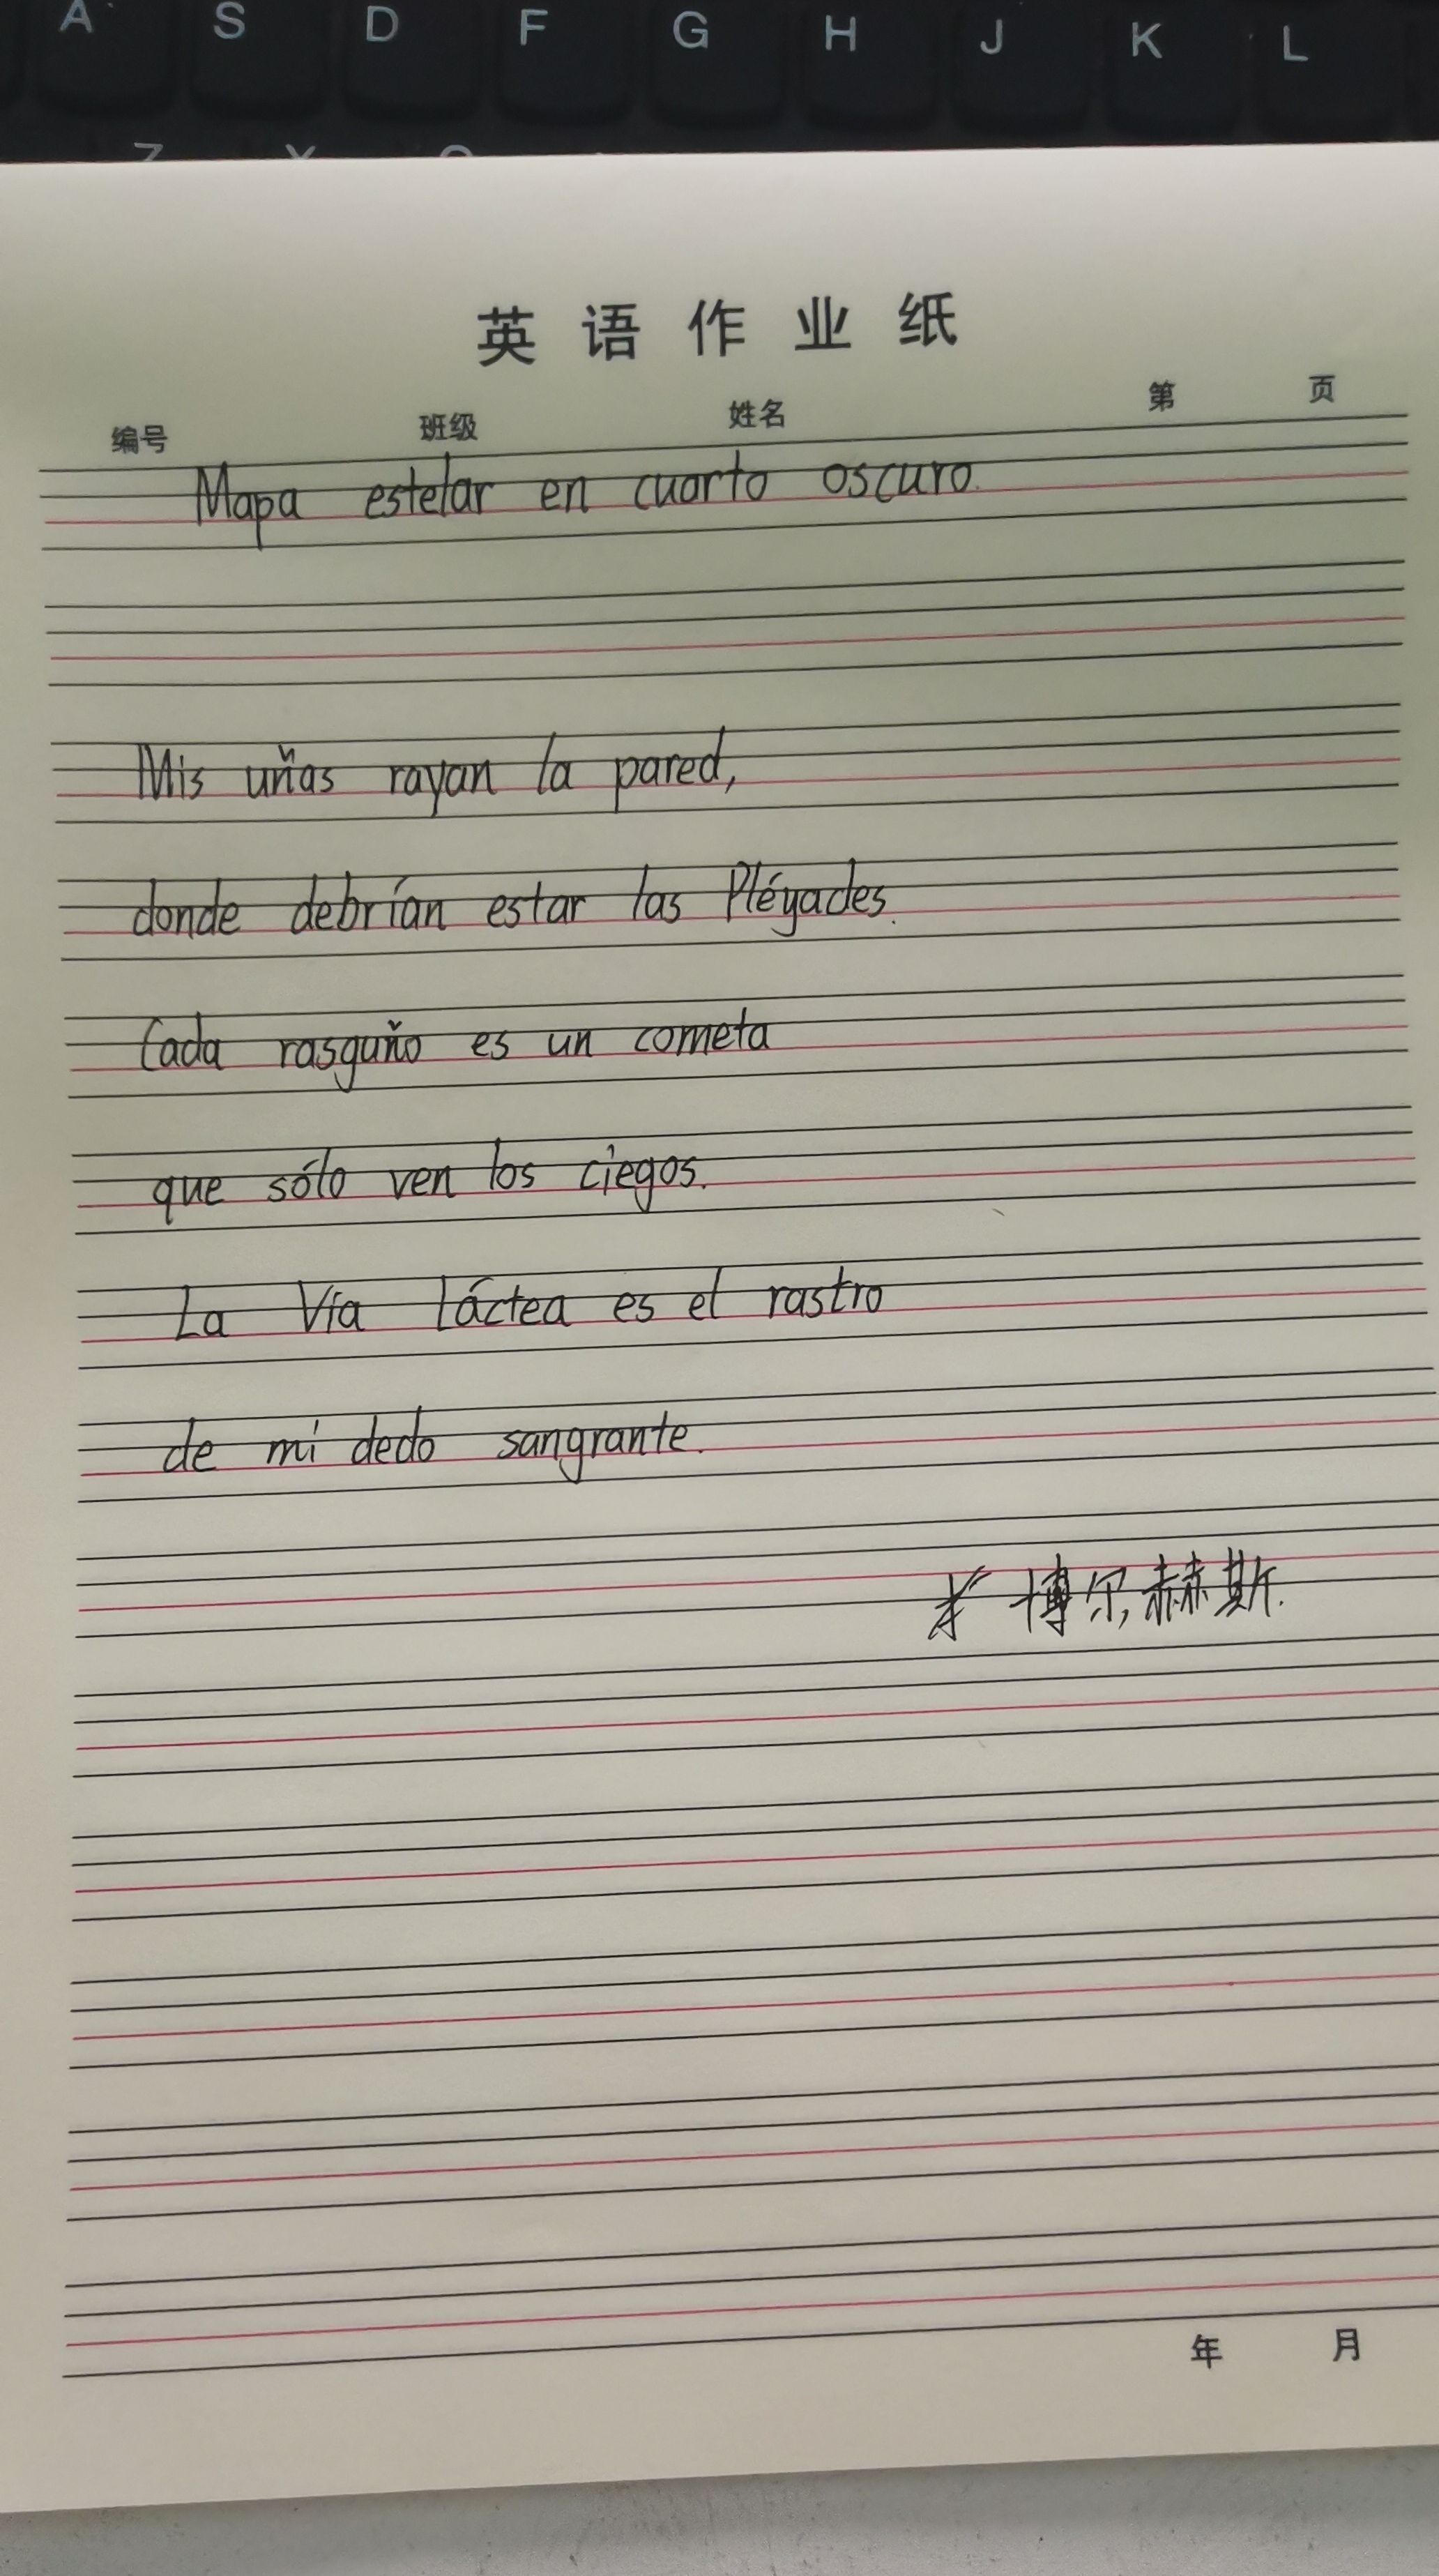 A S D F G H J K L
Z X C
英语作业纸
编号 班级 姓名 第 页
Mapa estelar en cuarto oscuro.
Mis uñas rayan la pared,
donde debrían estar las Pléyades.
Cada rasguño es un cometa
que sólo ven los ciegos.
La Vía Láctea es el rastro
de mi dedo sangrante.
博尔赫斯.
年 月